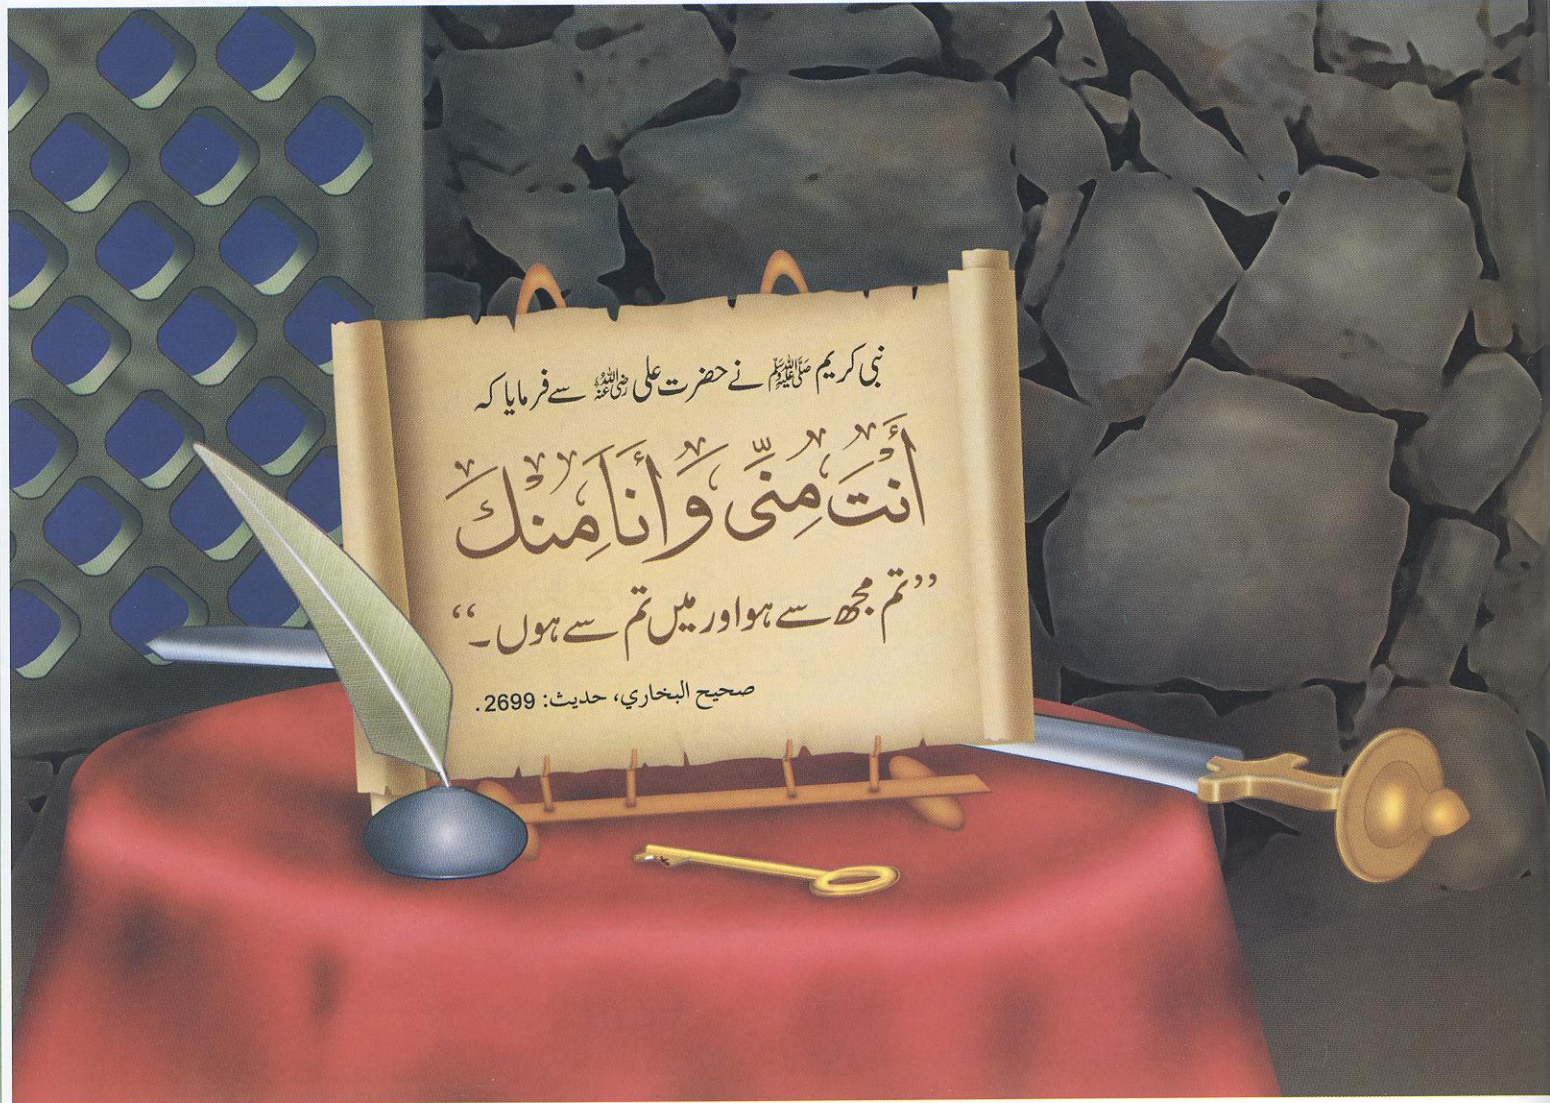 نبی کریم ﷺ نے حضرت علی رضی اللہ عنہ سے فرمایا کہ
أَنْتَ مِنِّي وَأَنَا مِنْكَ
’’تم مجھ سے ہو اور میں تم سے ہوں۔‘‘
صحيح البخاري، حديث: 2699.